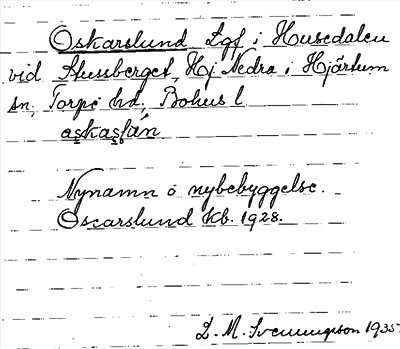 Oskarslund Lgf i Husedalen
vid Stussberget, Hj. Nedra i Hjärtum
sn, Torpe hd, Bohus l
aşkaşļán
Nynamn o nybebyggelse.
Oscarslund Kb. 1928.
D. M. Svenungsson 1935.